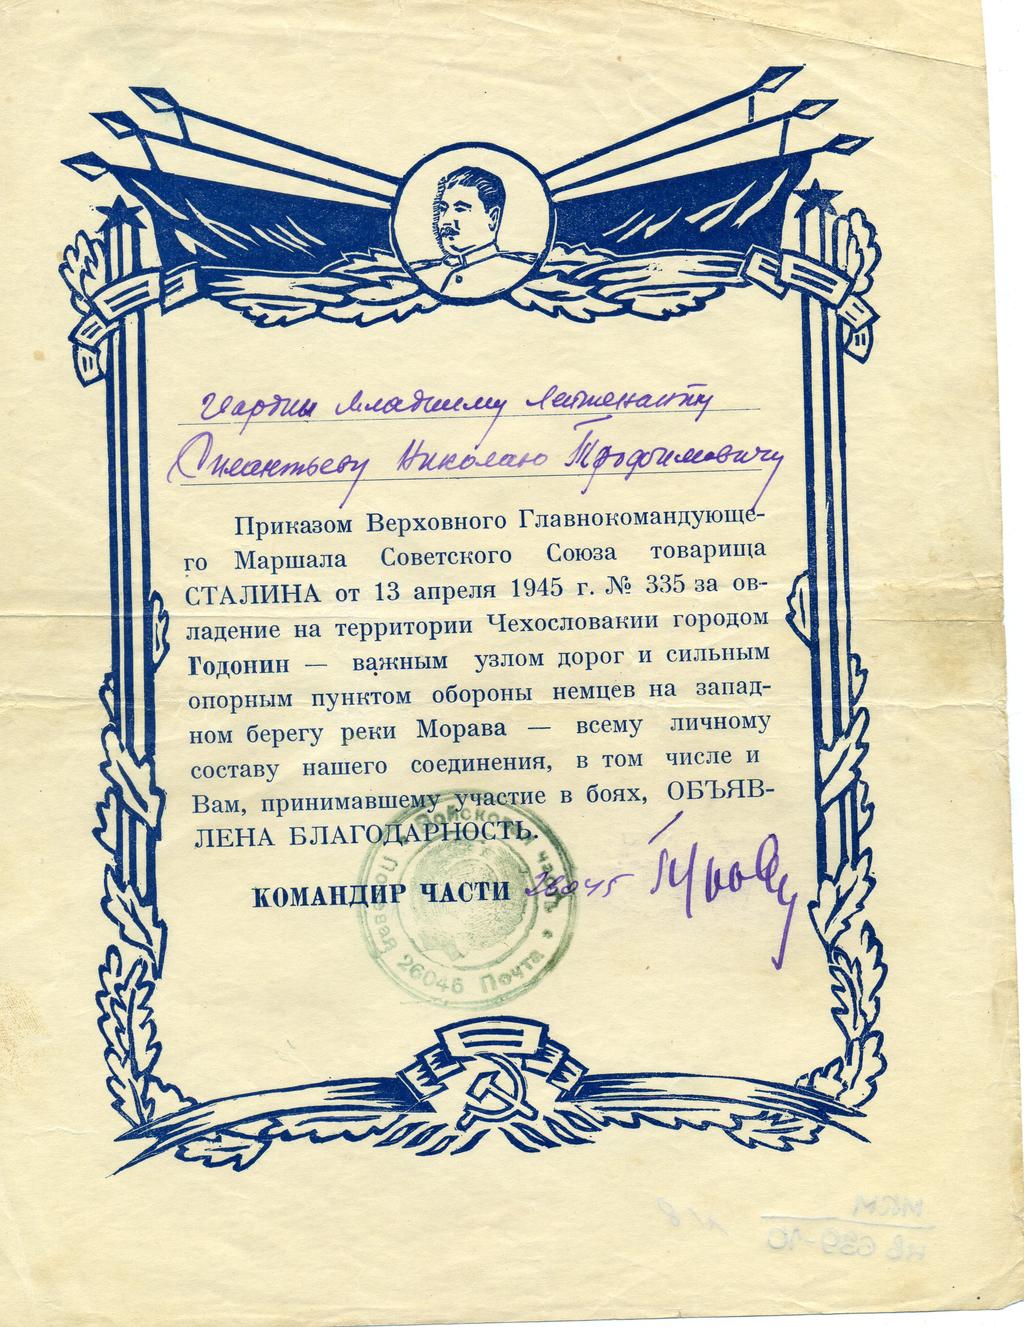 Гвардии младшему лейтенанту
Силантьеву Николаю Трофимовичу
Приказом Верховного Главнокомандующе-
го Маршала Советского Союза товарища
СТАЛИНА от 13 апреля 1945 г. № 335 за ов-
ладение на территории Чехословакии городом
Годонин — важным узлом дорог и сильным
опорным пунктом обороны немцев на запад-
ном берегу реки Морава — всему личному
составу нашего соединения, в том числе и
Вам, принимавшему участие в боях, ОБЪЯВ-
ЛЕНА БЛАГОДАРНОСТЬ.
КОМАНДИР ЧАСТИ 26045
Войсковая часть • Полевая Почта 26045